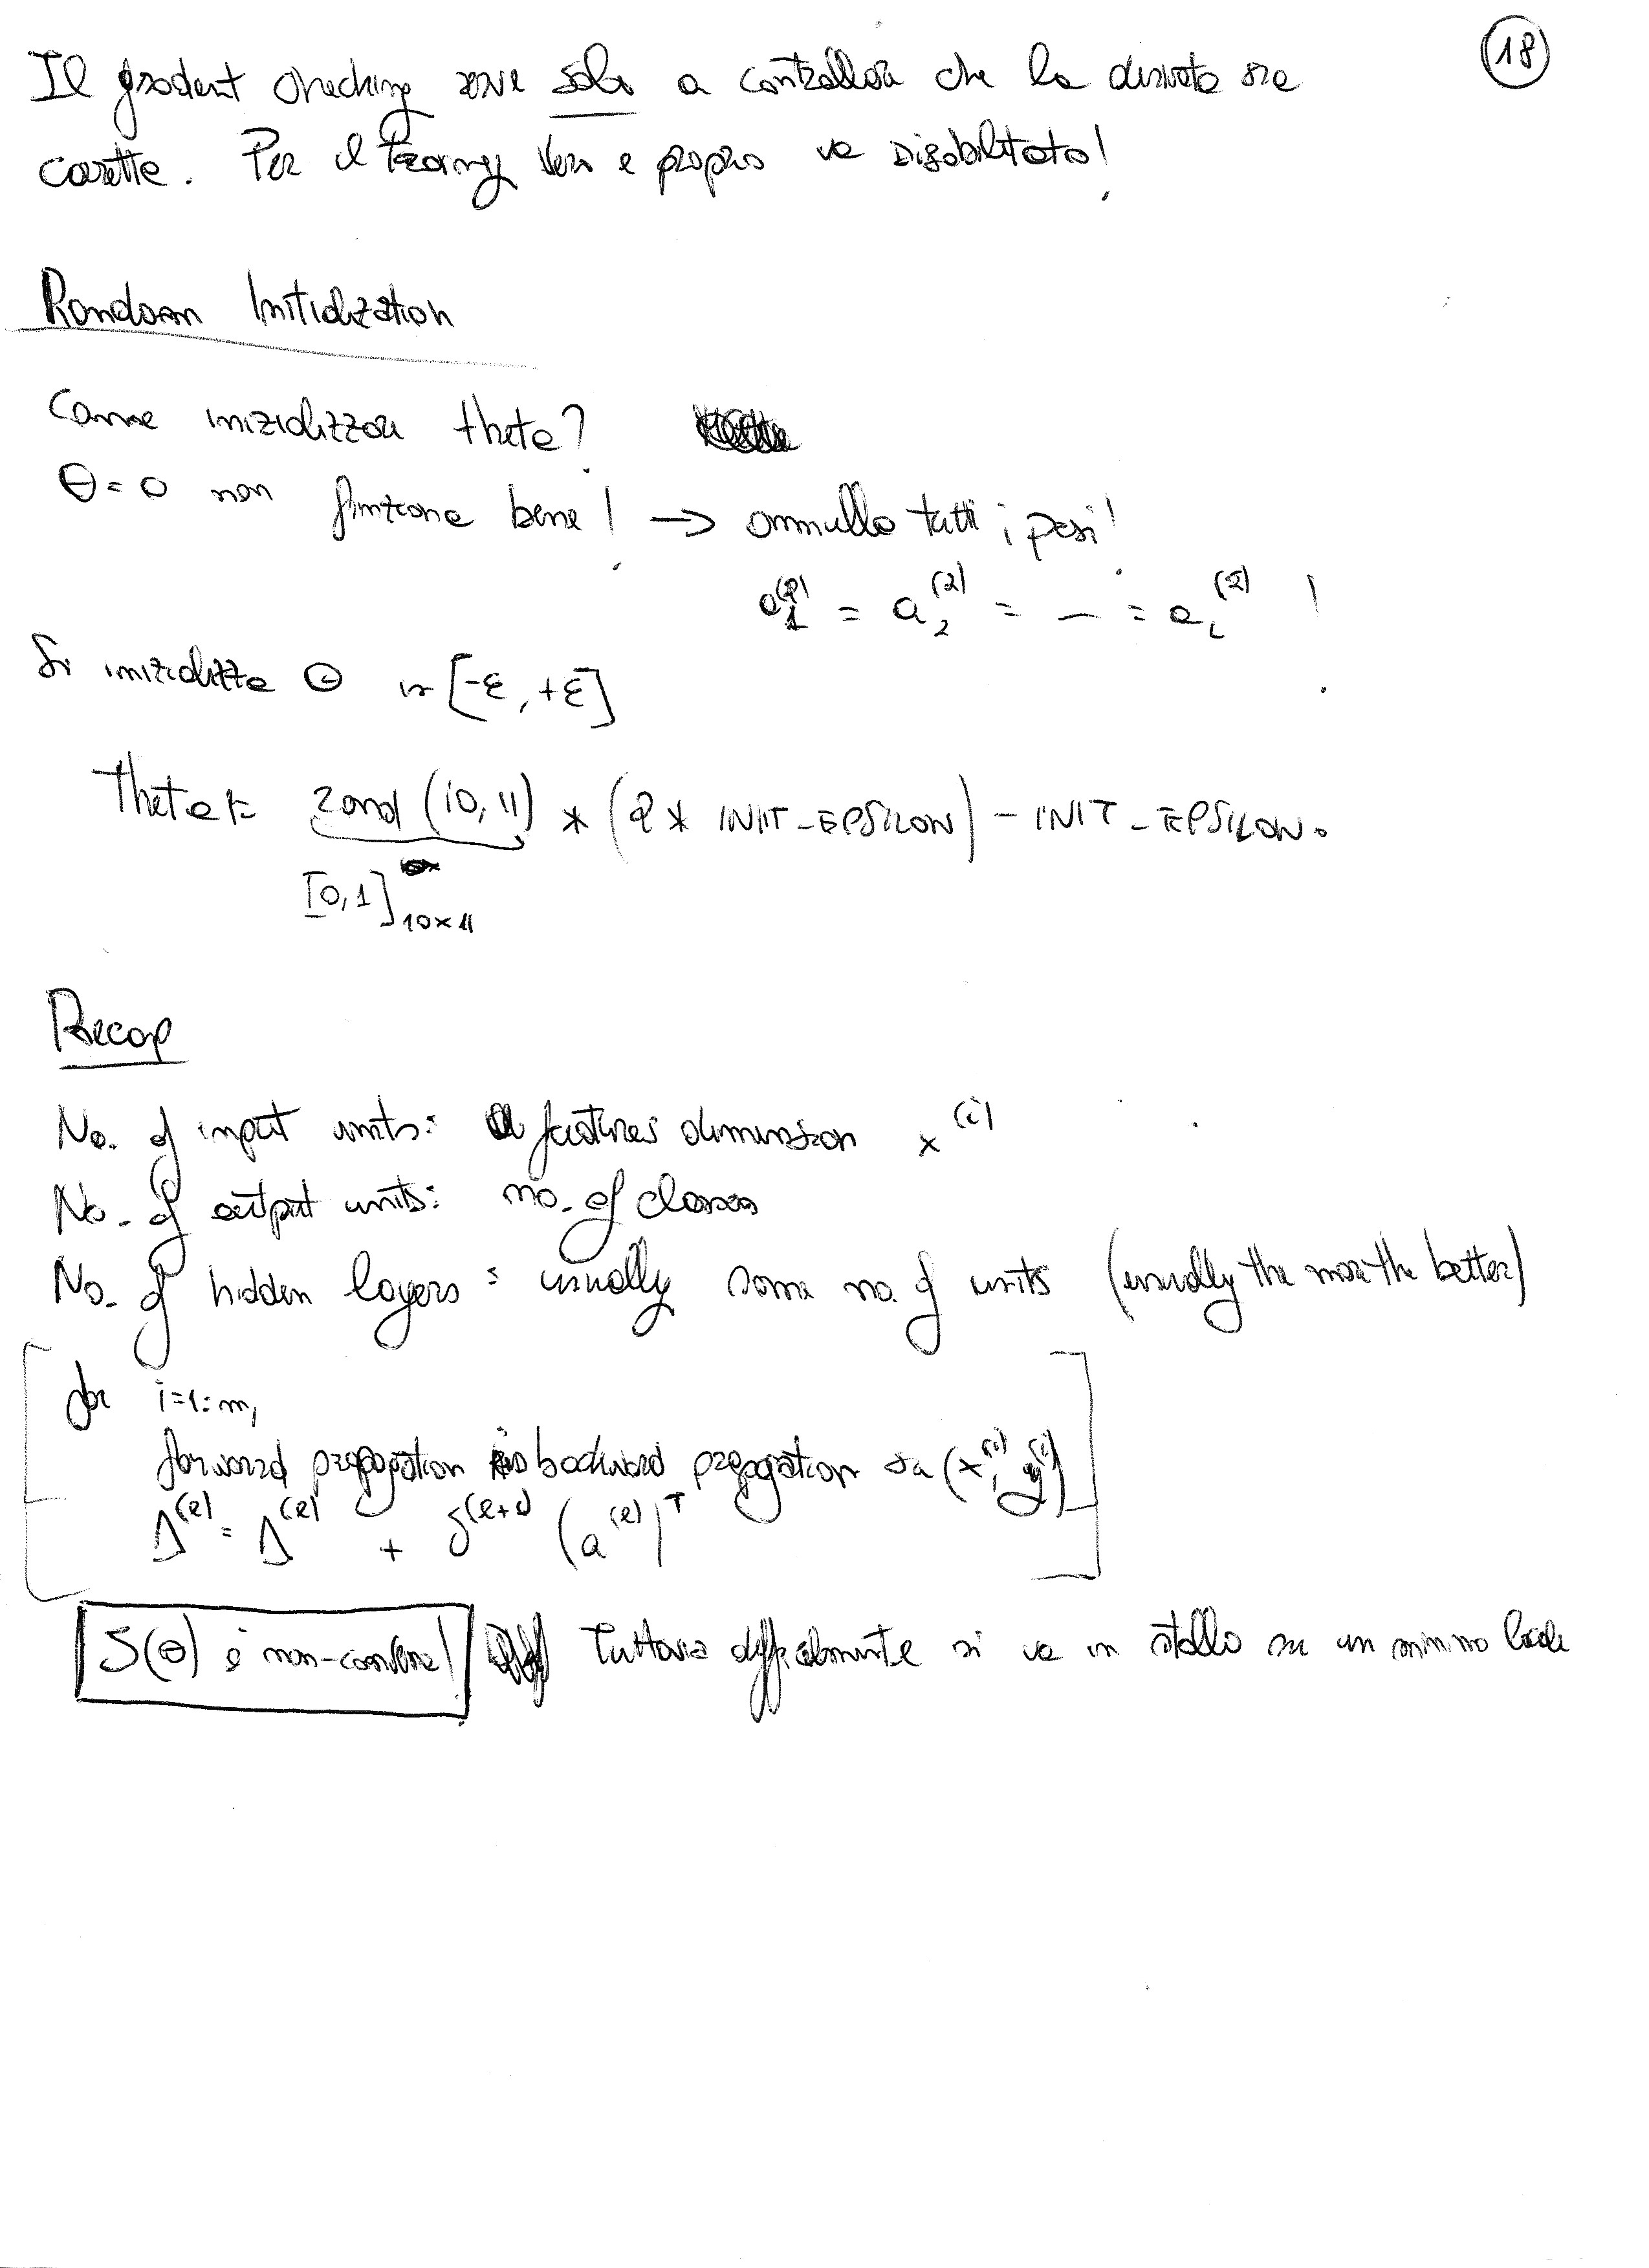 18
Il gradient checking serve solo a controllare che la derivata sia
corretta. Per il training vero e proprio va disabilitato!
Random Initialization
Come inizializzare theta?
Θ=0 non funziona bene! → annullo tutti i pesi!
a₁⁽²⁾ = a₂⁽²⁾ = — = aᵢ⁽²⁾ !
Si inizializza Θ in [-ε, +ε]
Theta1= rand (10, 11) * (2 * INIT_EPSILON) - INIT_EPSILON.
[0,1]10×11
Recap
No. of input units: features dimension x⁽ⁱ⁾
No. of output units: no. of classes
No. of hidden layers: usually same no. of units (usually the more the better)
for i=1:m,
forward propagation backward propagation su (x⁽ⁱ⁾, y⁽ⁱ⁾)
Δ⁽ˡ⁾ = Δ⁽ˡ⁾ + δ⁽ˡ⁺¹⁾ (a⁽ˡ⁾)ᵀ
J(Θ) è non-convessa! Tuttavia difficilmente si va in stallo su un minimo locale